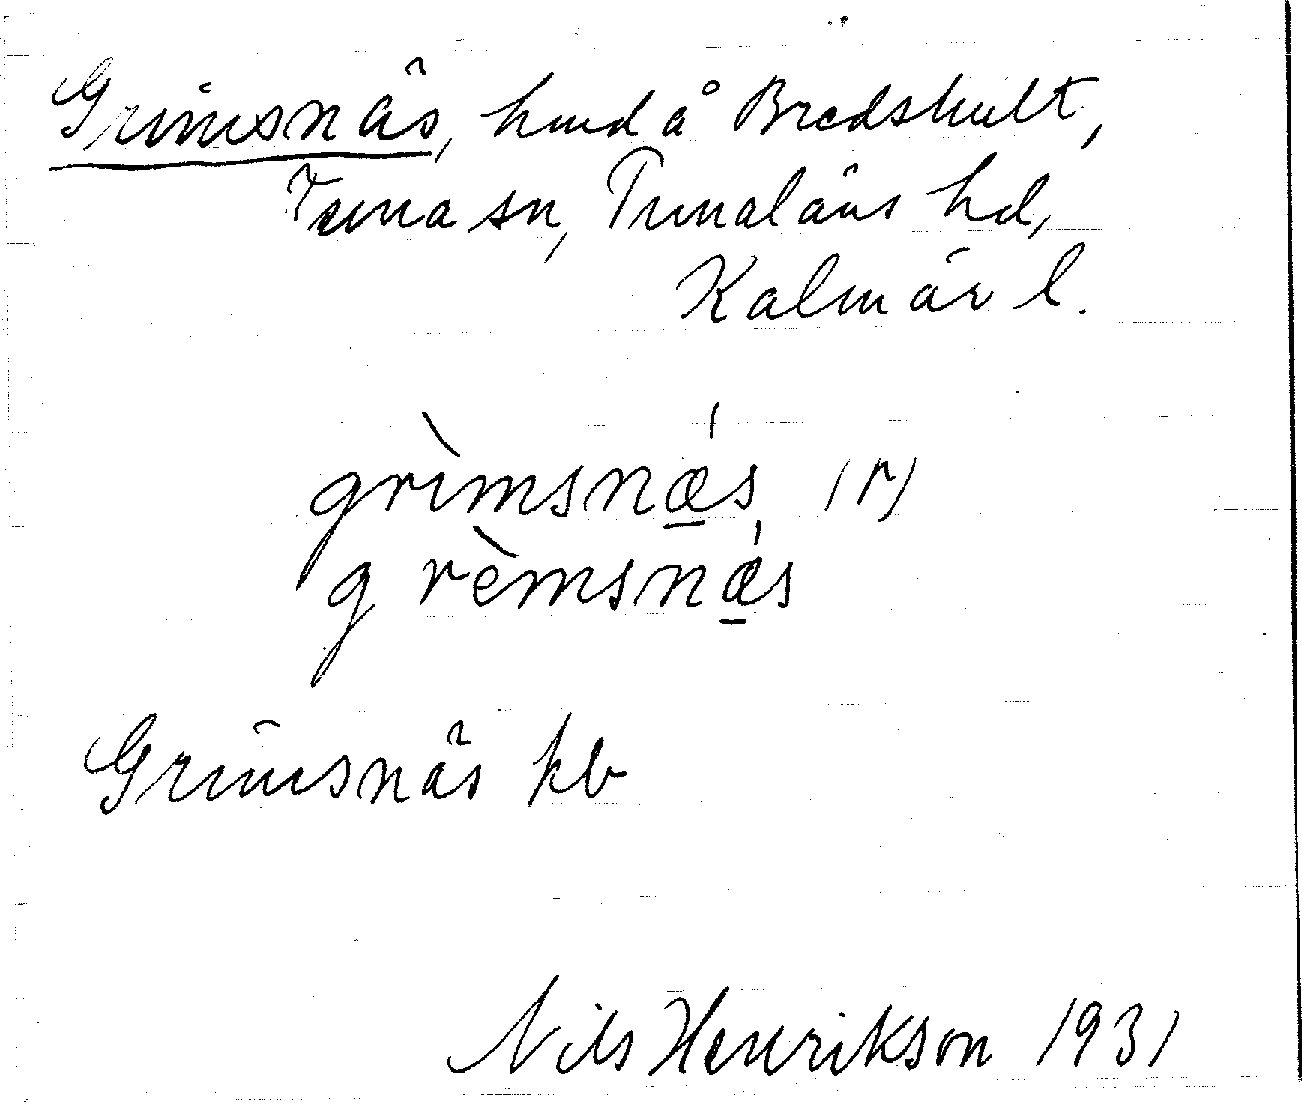 Grimsnäs, hmd å Bredshult,
Tuna sn, Tunaläns hd,
Kalmar l.
grìmsnæ̲´s, (r)
grèmsnæ̲´s
Grimsnäs kb
Nils Henrikson 1931